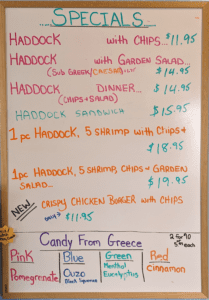 SPECIALS...
HADDOCK with CHIPS...$11.95
HADDOCK with GARDEN SALAD...
(SUB GREEK/CAESAR $14.95
HADDOCK DINNER... $14.95
(CHIPS & SALAD)
HADDOCK SANDWICH $15.95
1 pc HADDOCK, 5 SHRIMP with CHIPS
$18.95
1pc HADDOCK, 5 SHRIMP, CHIPS & GARDEN
SALAD... $19.95
NEW CRISPY CHICKEN BURGER with CHIPS
$11.95
Candy From Greece
Pink Blue Green Red
Pomegranate Ouzo Menthol Cinnamon
Black Licorice Eucalyptus